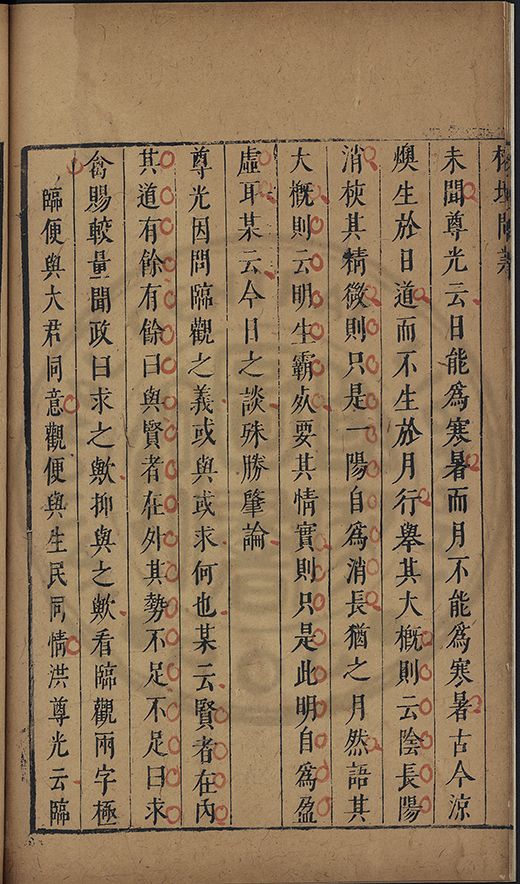 未聞尊光云日能為寒暑而月不能為寒暑古今涼
燠生於日道而不生於月行舉其大概則云陰長陽
消挾其精微則只是一陽自為消長猶之月然語其
大概則云明生霸㚈要其情實則只是此明自為盈
虛耳某云今日之談殊勝肇論
尊光因問臨觀之義或與或求何也某云賢者在內
其道有餘有餘曰與賢者在外其勢不足不足曰求
禽賜較量聞政曰求之歟抑與之歟看臨觀兩字極
臨便與大君同意觀便與生民同情洪尊光云臨